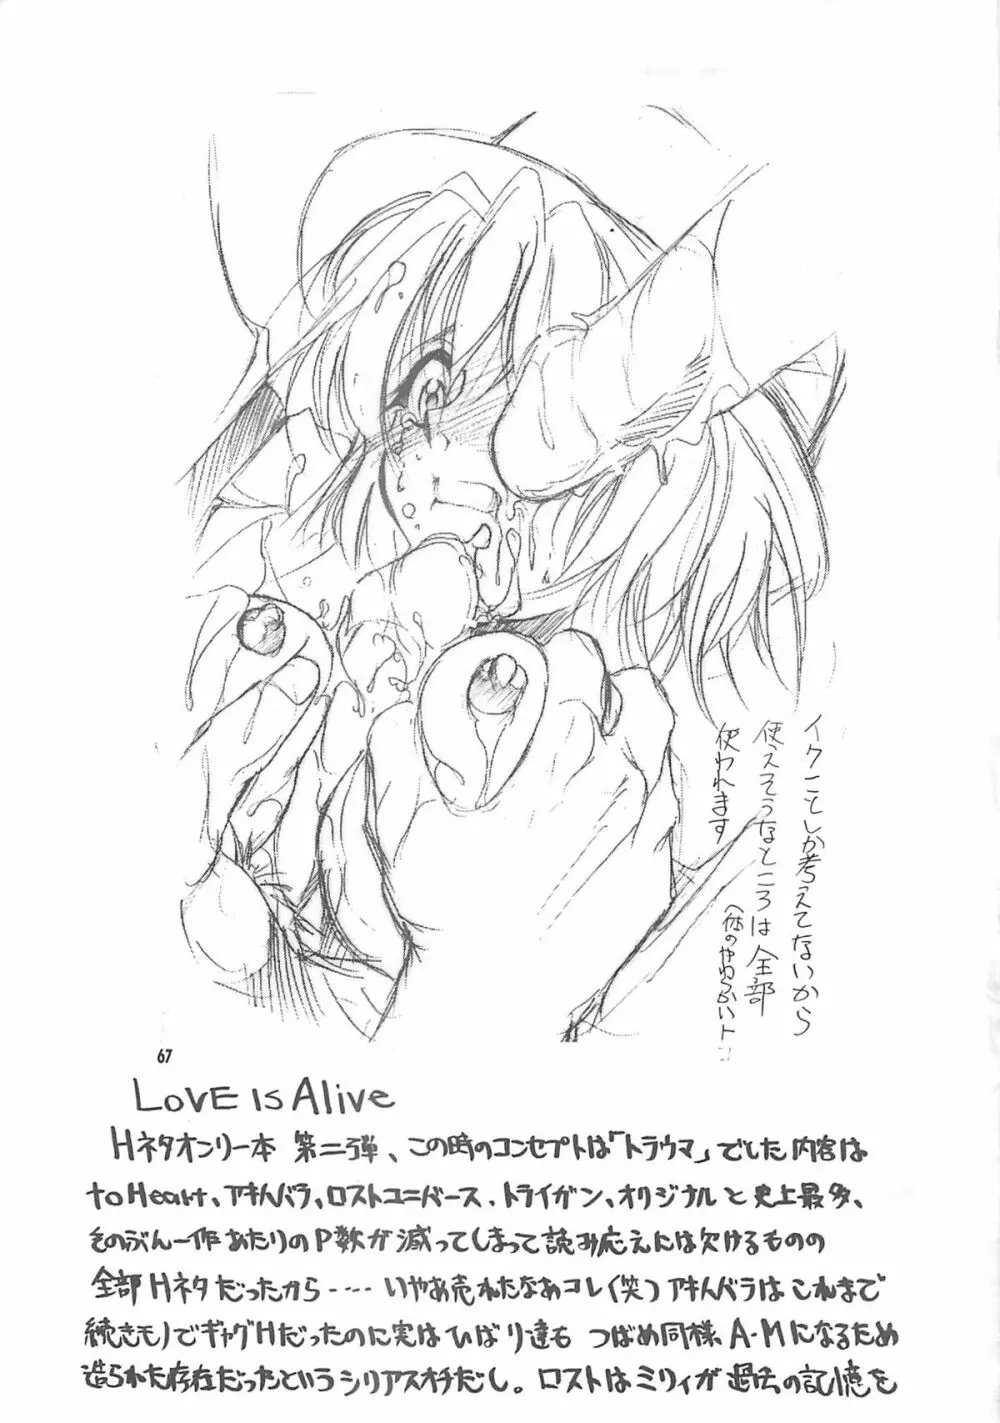 イクことしか考えてないから
使えそうなところは全部
使われます
(体のやわらかいトコ
67
LOVE IS Alive
Hネタオンリー本 第二弾、この時のコンセプトは「トラウマ」でした 内容は
to Heart、アキハバラ、ロストユニバース、トライガン、オリジナルと史上最多、
そのぶん一作あたりのP数が減ってしまって読み応えには欠けるものの
全部Hネタだったから‥‥いやあ売れたなあコレ(笑)アキハバラはこれまで
続きモノでギャグHだったのに実はひばり達も つばめ同様 A-Mになるため
造られた存在だったというシリアスオチだし。ロストはミリィが過去の記憶を